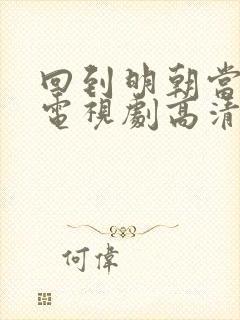 回到明朝當
電視劇高清
何偉